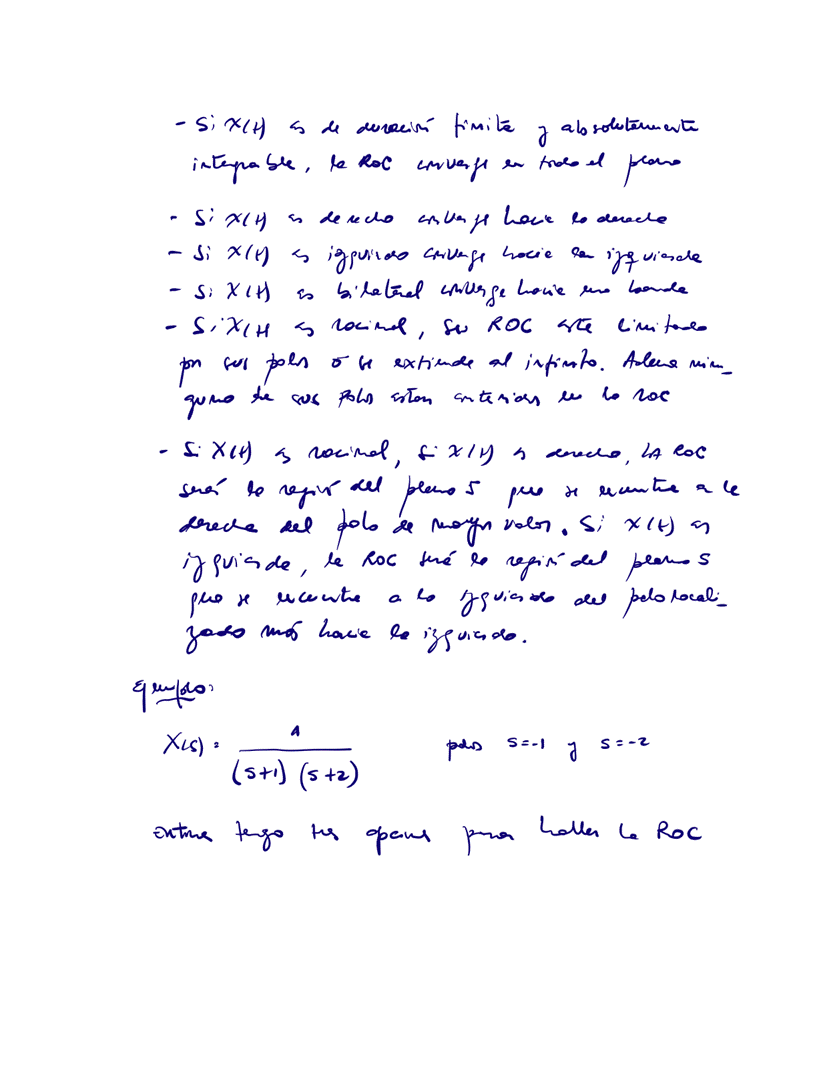 - Si X(t) es de duración finita y absolutamente
integrable, la ROC converge en todo el plano
- Si X(t) es derecha converge hacia la derecha
- Si X(t) es izquierda converge hacia la izquierda
- Si X(t) es bilateral converge hacia una banda
- Si X(t) es racional, su ROC esta limitada
por sus polos o se extiende al infinito. Ademas nin-
guno de sus polos estan contenidos en la ROC
- Si X(t) es racional, si X(t) es derecha, LA ROC
será la región del plano S que se encuentra a la
derecha del polo de mayor valor. Si X(t) es
izquierda, la ROC será la región del plano S
que se encuentra a la izquierda del polo locali-
zado más hacia la izquierda.
Ejemplo:
X(s) = 1 / (s+1) (s+2) polos s=-1 y s=-2
entonces tengo tres opciones para hallar la ROC